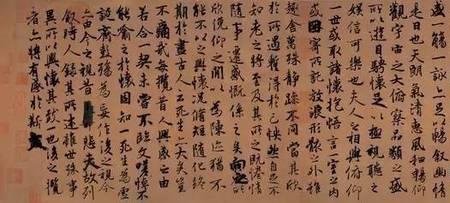 盛一觴一詠亦足以暢叙幽情
是日也天朗氣清惠風和暢仰
觀宇宙之大俯察品類之盛
所以遊目騁懷足以極視聽之
娛信可樂也夫人之相與俯仰
一世或取諸懷抱悟言一室之內
或因寄所託放浪形骸之外雖
趣舍萬殊靜躁不同當其欣
於所遇暫得於己怏然自足不
知老之將至及其所之既惓情
隨事遷感慨係之矣向之所
欣俛仰之間以為陳迹猶不
能不以之興懷況脩短隨化終
期於盡古人云死生亦大矣豈
不痛哉每攬昔人興感之由
若合一契未嘗不臨文嗟悼不
能喻之於懷固知一死生為虛
誕齊彭殤為妄作後之視今
亦由今之視昔悲夫故列
叙時人錄其所述雖世殊事
異所以興懷其致一也後之攬
者亦將有感於斯文